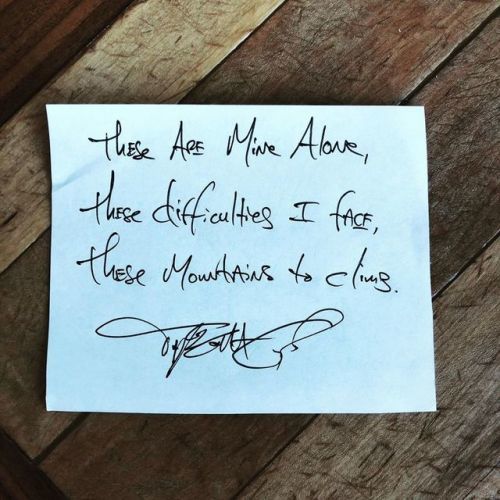 these ARE Mine Alone,
these difficulties I fACE,
these MountAins to climb.